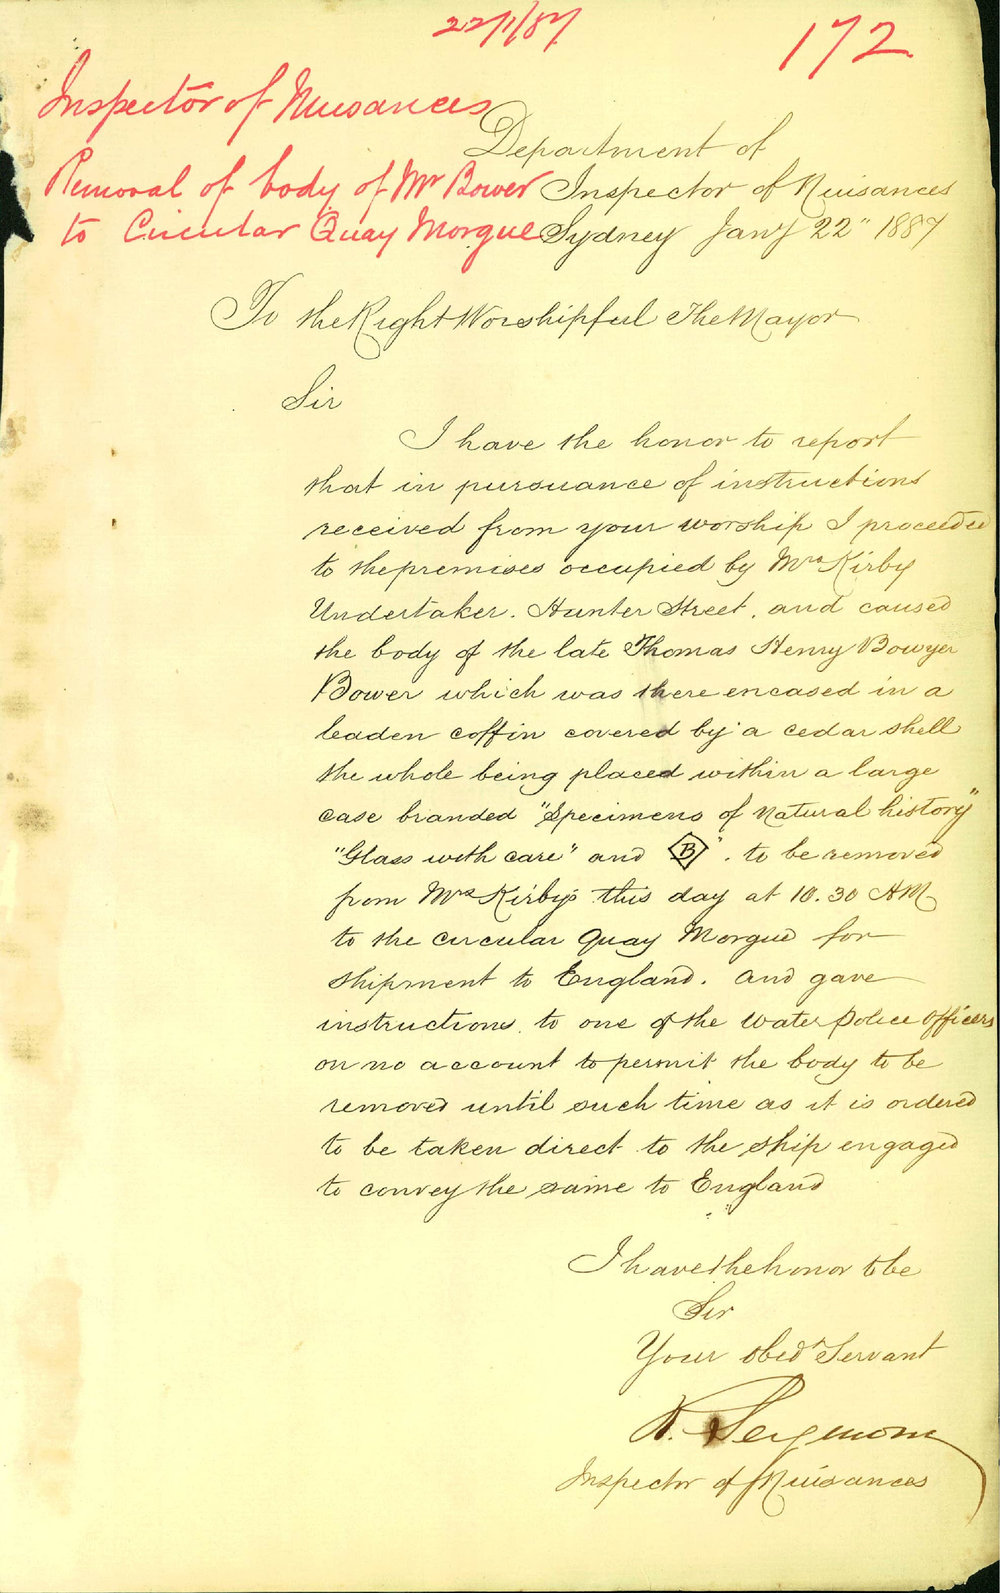 22/1/87
172
Inspector of Nuisances
Removal of body of Mr Bower
to Circular Quay Morgue
Department of
Inspector of Nuisances
Sydney Jany 22" 1887
To the Right Worshipful The Mayor
Sir
I have the honor to report
that in pursuance of instructions
received from your worship I proceeded
to the premises occupied by Mrs Kirby
Undertaker. Hunter Street, and caused
the body of the late Thomas Henry Bowyer
Bower which was there encased in a
leaden coffin covered by a cedar shell
the whole being placed within a large
case branded "Specimens of Natural history"
"Glass with care" and B". to be removed
from Mrs Kirby's this day at 10.30 AM
to the circular Quay Morgue for
shipment to England. and gave
instructions to one of the Water Police Officers
on no account to permit the body to be
removed until such time as it is ordered
to be taken direct to the ship engaged
to convey the same to England
I have the honor to be
Sir
Your obedt Servant
Seymour
Inspector of Nuisances